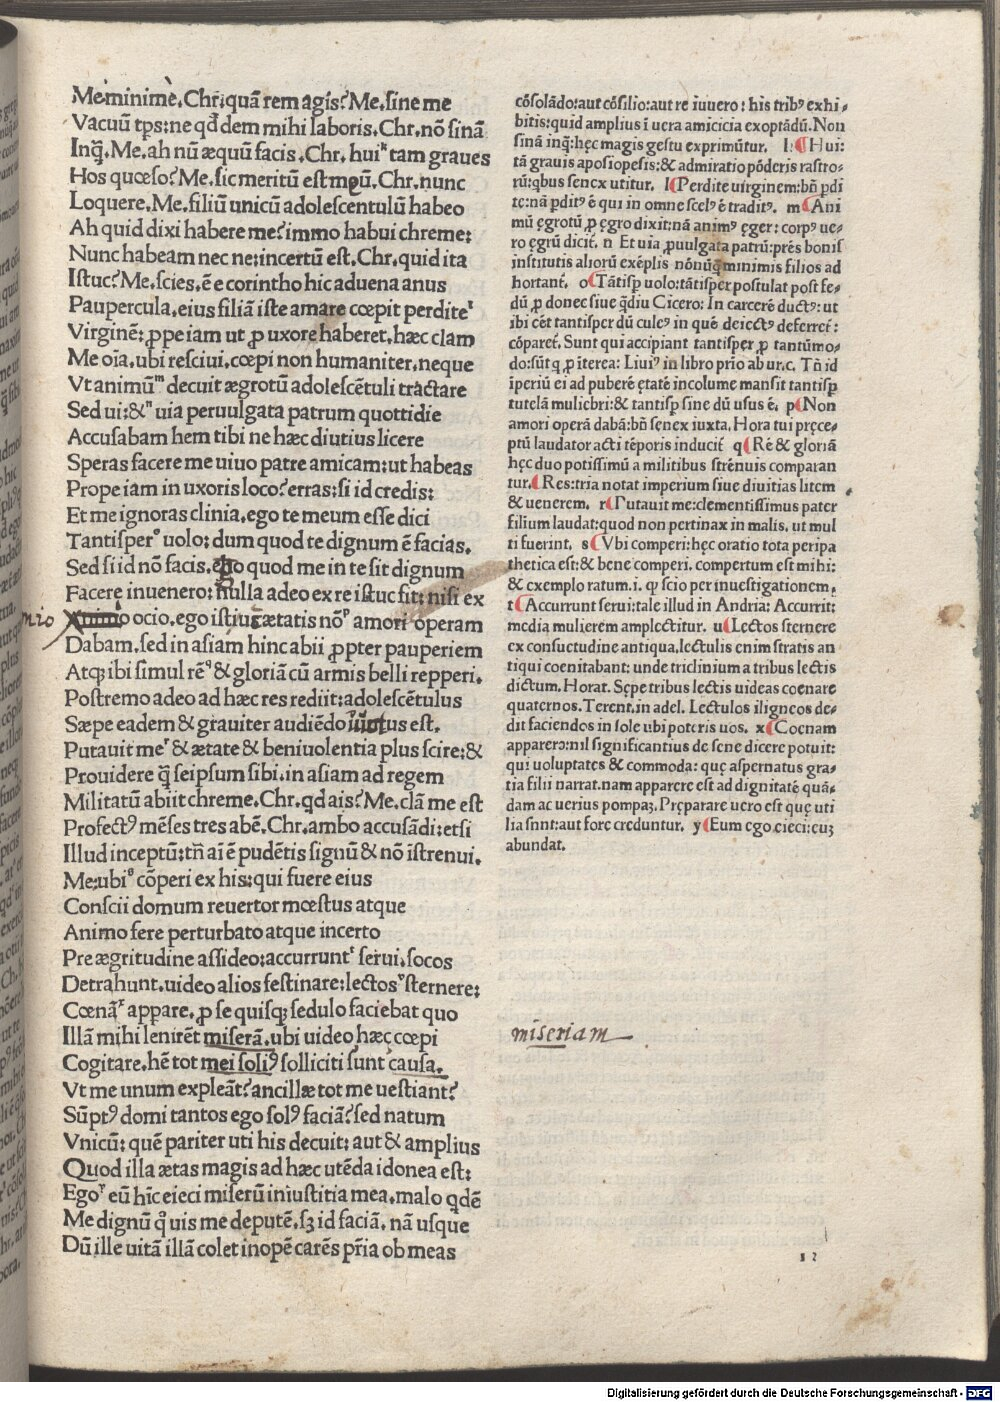 Me.minime.Chr.quā rem agis?Me.sine me
Vacuū tp̄s:ne qd̄ dem mihi laboris.Chr.nō sinā
Inq̄.Me.ah nū æquū facis.Chr.hui tam graues
Hos quœso?Me.sic meritū est meū.Chr.nunc
Loquere.Me.filiū unicū adolescentulū habeo
Ah quid dixi habere me?immo habui chreme:
Nunc habeam nec ne:incertū est.Chr.quid ita
Istuc?Me.scies.ē e corintho hic aduena anus
Paupercula.eius filiā iste amare cœpit perdite
Virginē:ꝓpe iam ut ꝓ uxore haberet.hæc clam
Me oīa.ubi resciui.cœpi non humaniter.neque
Vt animū decuit ægrotū adolescētuli tractare
Sed ui:& uia peruulgata patrum quottidie
Accusabam hem tibi ne hæc diutius licere
Speras facere me uiuo patre amicam:ut habeas
Prope iam in uxoris loco?erras:si id credis:
Et me ignoras clinia.ego te meum esse dici
Tantisper uolo:dum quod te dignum ē facias.
Sed si id nō facis.ego quod me in te sit dignum
Facere inuenero:nulla adeo ex re istuc fit:nisi ex
nio ocio.ego istius ætatis nō amori operam
Dabam.sed in asiam hinc abii ꝓpter pauperiem
Atq; ibi simul rē & gloriā cū armis belli repperi.
Postremo adeo ad hæc res rediit:adolescētulus
Sæpe eadem & grauiter audiēdo uictus est.
Putauit me & ætate & beniuolentia plus scire:&
Prouidere q̄ seipsum sibi.in asiam ad regem
Militatū abiit chreme.Chr.qd ais?Me.clā me est
Profectꝰ mēses tres abē.Chr.ambo accusādi:etsi
Illud inceptū:tn̄ aīē pudētis signū & nō īstrenui.
Me:ubi cōperi ex his:qui fuere eius
Conscii domum reuertor mœstus atque
Animo fere perturbato atque incerto
Pre ægritudine assideo:accurrunt serui.socos
Detrahunt.uideo alios festinare:lectos sternere:
Cœnā appare.ꝓ se quisq; sedulo faciebat quo
Illā mihi lenirēt miserā.ubi uideo hæc cœpi
Cogitare.hē tot mei soliꝰ solliciti sunt causa.
Vt me unum expleāt?ancillæ tot me uestiant?
Sūptꝰ domi tantos ego solꝰ faciā?sed natum
Vnicū:quē pariter uti his decuit:aut & amplius
Quod illa ætas magis ad hæc utēda idonea est:
Ego eū hīc eieci miserū iniustitia mea.malo qdē
Me dignū q̊uis me deputē.sꝫ id faciā.nā usque
Dū ille uitā illā colet inopē carēs pr̄ia ob meas
cōsolādo:aut cōsilio:aut re iuuero: his tribꝰ exhi-
bitis:quid amplius ī uera amicicia exoptādū. Non
sinā inq̄:hęc magis gestu exprimūtur. l: Hui:
tā grauis aposiopesis:& admiratio pōderis rastro-
rū:qbus senex utitur. l Perdite uirginem:bn̄ pdi
te:nā pditꝰ ē qui in omne scelꝰ ē traditꝰ. m Ani
mū ęgrotū ꝓ ęgro dixit:nā animꝰ ęger: corpꝰ ue-
ro ęgrū dicit̄. n Et uia ꝓuulgata patrū:prēs bonis
institutis aliorū exēplis nōnūq̄ minimis filios ad
hortant̄. o Tātisꝑ uolo:tātisper postulat post se-
dū ꝓ donec siue q̄diu Cicero: In carcerē ductꝰ: ut
ibi cēt tantisper dū culeꝰ in quē deiectꝰ deferret̄:
cōparet̄. Sunt qui accipiant tantisper ꝓ tantūmo-
do:sūt q ꝓ iterea: Liuiꝰ in libro prīo ab ur.c. Tn̄ id
īperiū ei ad puberē ętatē incolume mansit tantisꝑ
tutelā muliebri:& tantisꝑ sine dū usus ē. p Non
amori operā dabā:bn̄ sęnex iuxta. Hora tui pręce-
ptū laudator acti tēporis inducit̄ q Rē & gloriā
hęc duo potissimū a militibus strēnuis comparan
tur. Res:tria notat imperium siue diuitias litem
& uenerem. r Putauit me:clementissimus pater
filium laudat:quod non pertinax in malis, ut mul
ti fuerint. s Vbi comperi:hęc oratio tota peripa
thetica est:& bene comperi. compertum est mihi:
& exemplo ratum.i. ꝙ scio per inuestigationem.
t Accurrunt serui:tale illud in Andria: Accurrit:
media mulierem amplectitur. u Lectos sternere
ex consuetudine antiqua.lectulis enim stratis an
tiqui coenitabant: unde triclinium a tribus lectis
dictum. Horat. Sępe tribus lectis uideas coenare
quaternos. Terent.in adel. Lectulos iligneos de-
dit faciendos in sole ubi poteris uos. x Coenam
apparero:nil significantius de sene dicere potuit:
qui uoluptates & commoda: quę aspernatus gra-
tia filii narrat.nam apparere est ad dignitatē quā-
dam ac uerius pompaꝫ. Pręparare uero est quę uti
lia snnt:aut fore creduntur. y Eum ego eieci:euꝫ
abundat.
miseriam
s 2
Digitalisierung gefördert durch die Deutsche Forschungsgemeinschaft - DFG